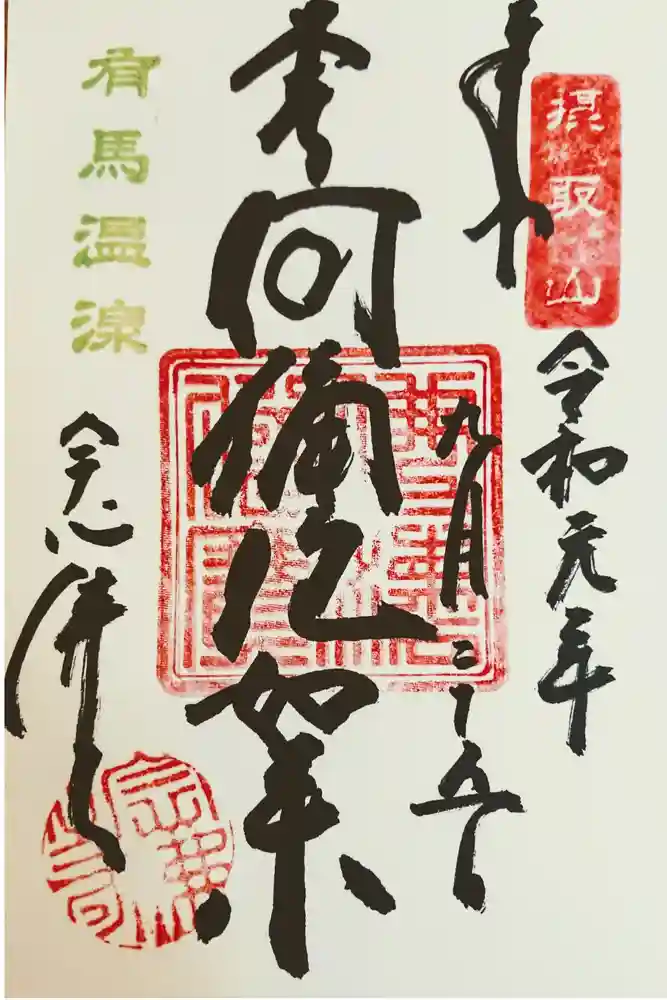 摂取山
奉拝
令和元年
九月二十五
阿彌陀如来
有馬温泉
念佛寺